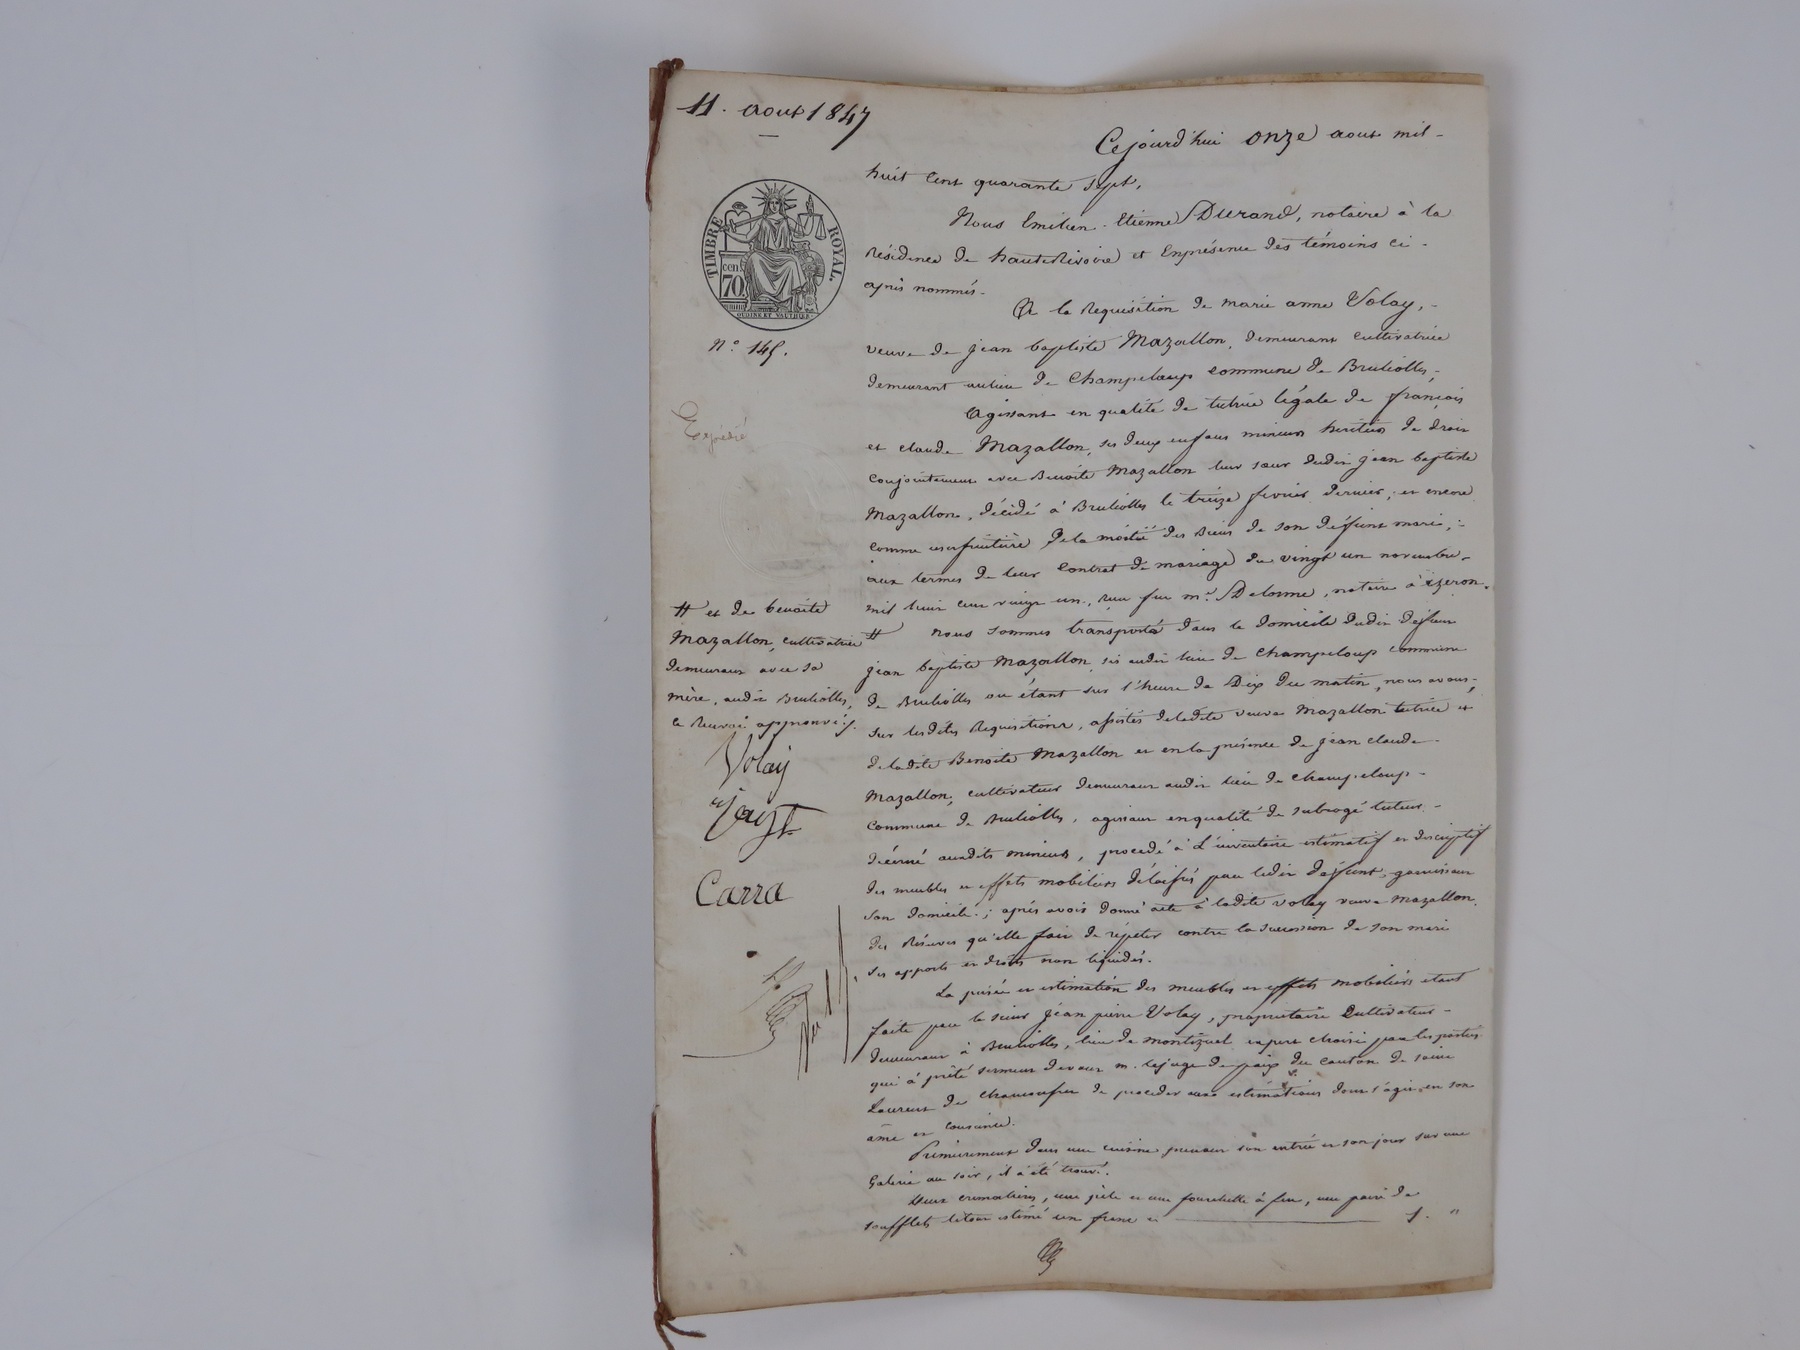 11. aout 1847
Cejourd'hui onze aout mil-
huit cent quarante sept,
Nous Emilien-Etienne Durand, notaire à la
Résidence de hauteRivoire et Enprésence des témoins ci-
après nommés-
A la Requisition de marie anne Volay,-
veuve de jean baptiste Mazallon, demeurant cultivatrice
demeurant aulieu de Champeloup commune de Brulioles,-
Agissant en qualité de tutrice légale de françois
et claude Mazallon, ses deux enfans mineurs heritiers de droit
conjointement avec Benoite Mazallon leur sœur dudit jean baptiste
Mazallon, décédé à Brulioles le treize fevrier dernier, et encore
comme usufruitière de la moitié des Biens de son deffunt mari,-
aux termes de leur Contrat de mariage du vingt un novembre-
mil huit cent vingt un, reçu feu me Delorme, notaire à izeron.
# nous sommes transporté dans le domicile dudit deffunt
jean baptiste Mazallon, sis audit lieu de Champeloup commune
de Brulioles ou étant sur l'heure de Dix du matin, nous avons,
sur lesdites Requisitions, assistés deladite veuve Mazallon tutrice et
deladite Benoite Mazallon et en la présence de jean claude
Mazallon, cultivateur demeurant audit lieu de Champeloup-
commune de Brulioles, agissant enqualité de subrogé tuteur-
décerné auxdits mineurs, procedé à L'inventaire estimatif et descriptif
des meubles et effets mobiliers délaissés par ledit deffunt, garnissant
son domicile; après avoir donné acte à ladite volay veuve Mazallon
des Réserves qu'elle fait de répeter contre la succession de son mari
ses apports et droits non liquidés.
La prisée et estimation des meubles et effets mobiliers etant
faite par le sieur jean pierre Volay, propriétaire Cultivateur-
demeurant à Brulioles, lieu de montizuel expert choisi par les parties
qui à prêté serment devant m. lejuge de paix du canton de saint
Laurent de Chamousset de proceder aux estimations dont s'agit, en son
âme et conscience.
Premièrement dans une cuisine prenant son entrée et son jour sur une
Galerie au soir, il à été trouvé.
Deux cremalières, une pèle et une fourchette à feu, une paire de
soufflets letout estimé un franc ci 1. "
TIMBRE ROYAL
cen. 70
OUDINE ET VAUTHIER
N° 145.
Expédié
# et de benoite
Mazallon, cultivatrice
demeurant avec sa
mère, audit Brulioles,
le Renvoi approuvé.
Volay
Jayt
Carra